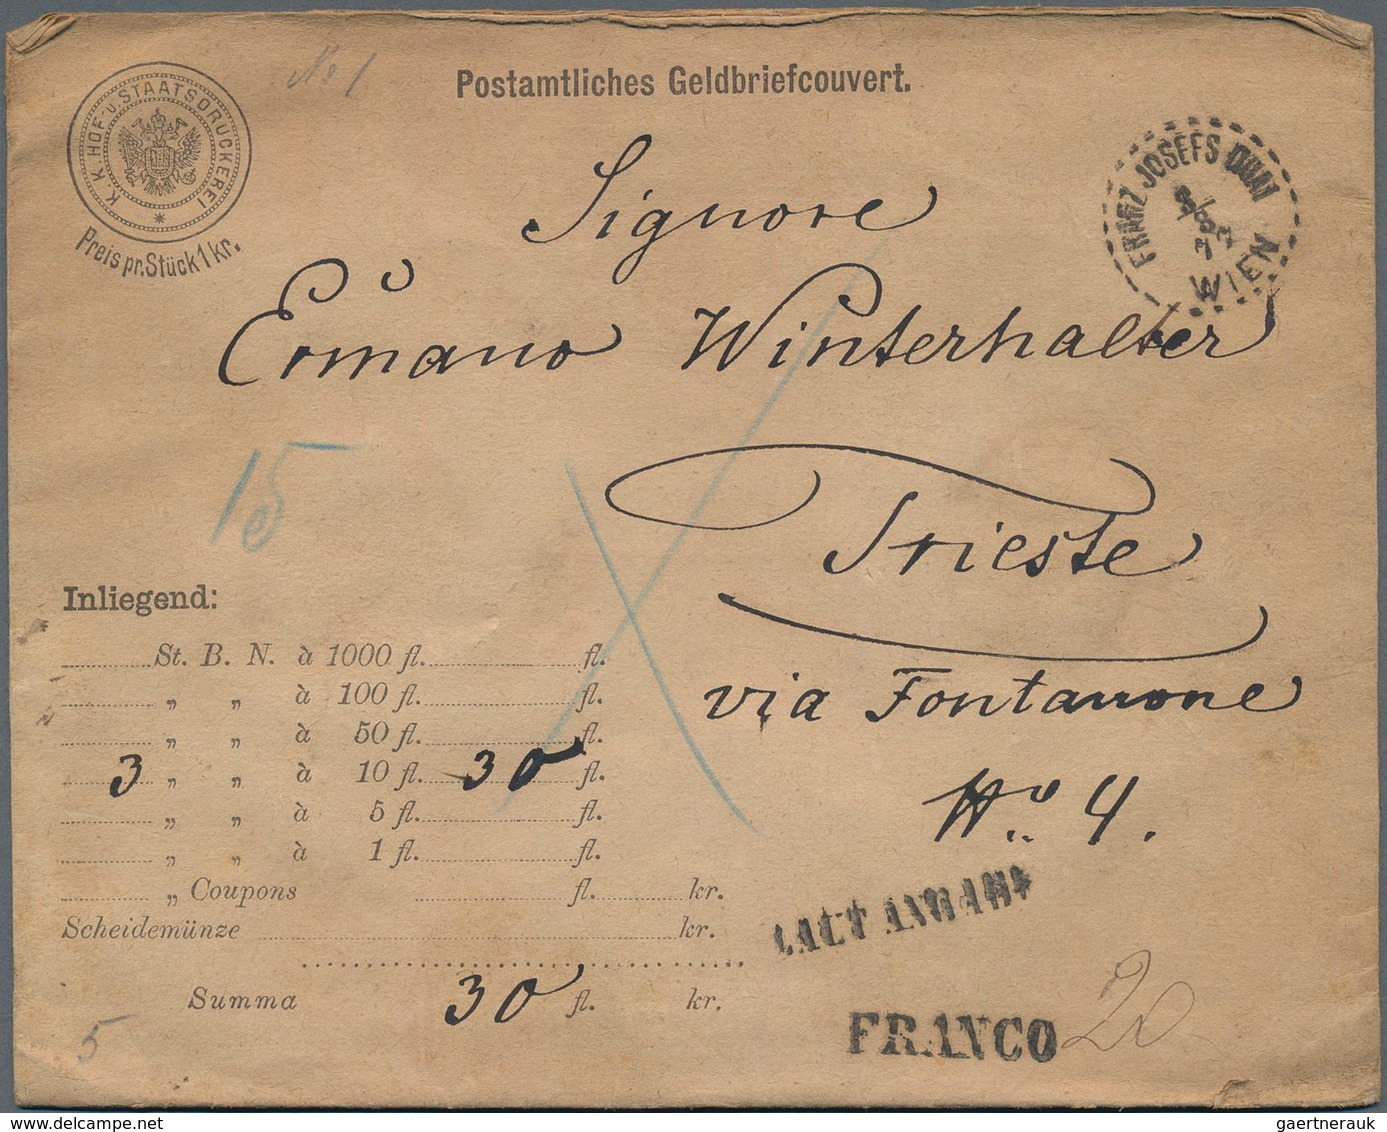 No 1
Postamtliches Geldbriefcouvert.
K. K. HOF- U. STAATSDRUCKEREI
Preis pr. Stück 1 kr.
FRANZ JOSEFS QUAI
WIEN
Signore
Ermano Winterhalter
15
Trieste
via Fontanone
No. 4.
Inliegend:
St. B. N. à 1000 fl. fl.
„ „ à 100 fl. fl.
„ „ à 50 fl. fl.
3 „ „ à 10 fl. 30 fl.
„ „ à 5 fl. fl.
„ „ à 1 fl. fl.
„ Coupons fl. kr.
Scheidemünze kr.
LAUT ANGABE
Summa 30 fl. kr.
FRANCO 20
5
gaertnerauk